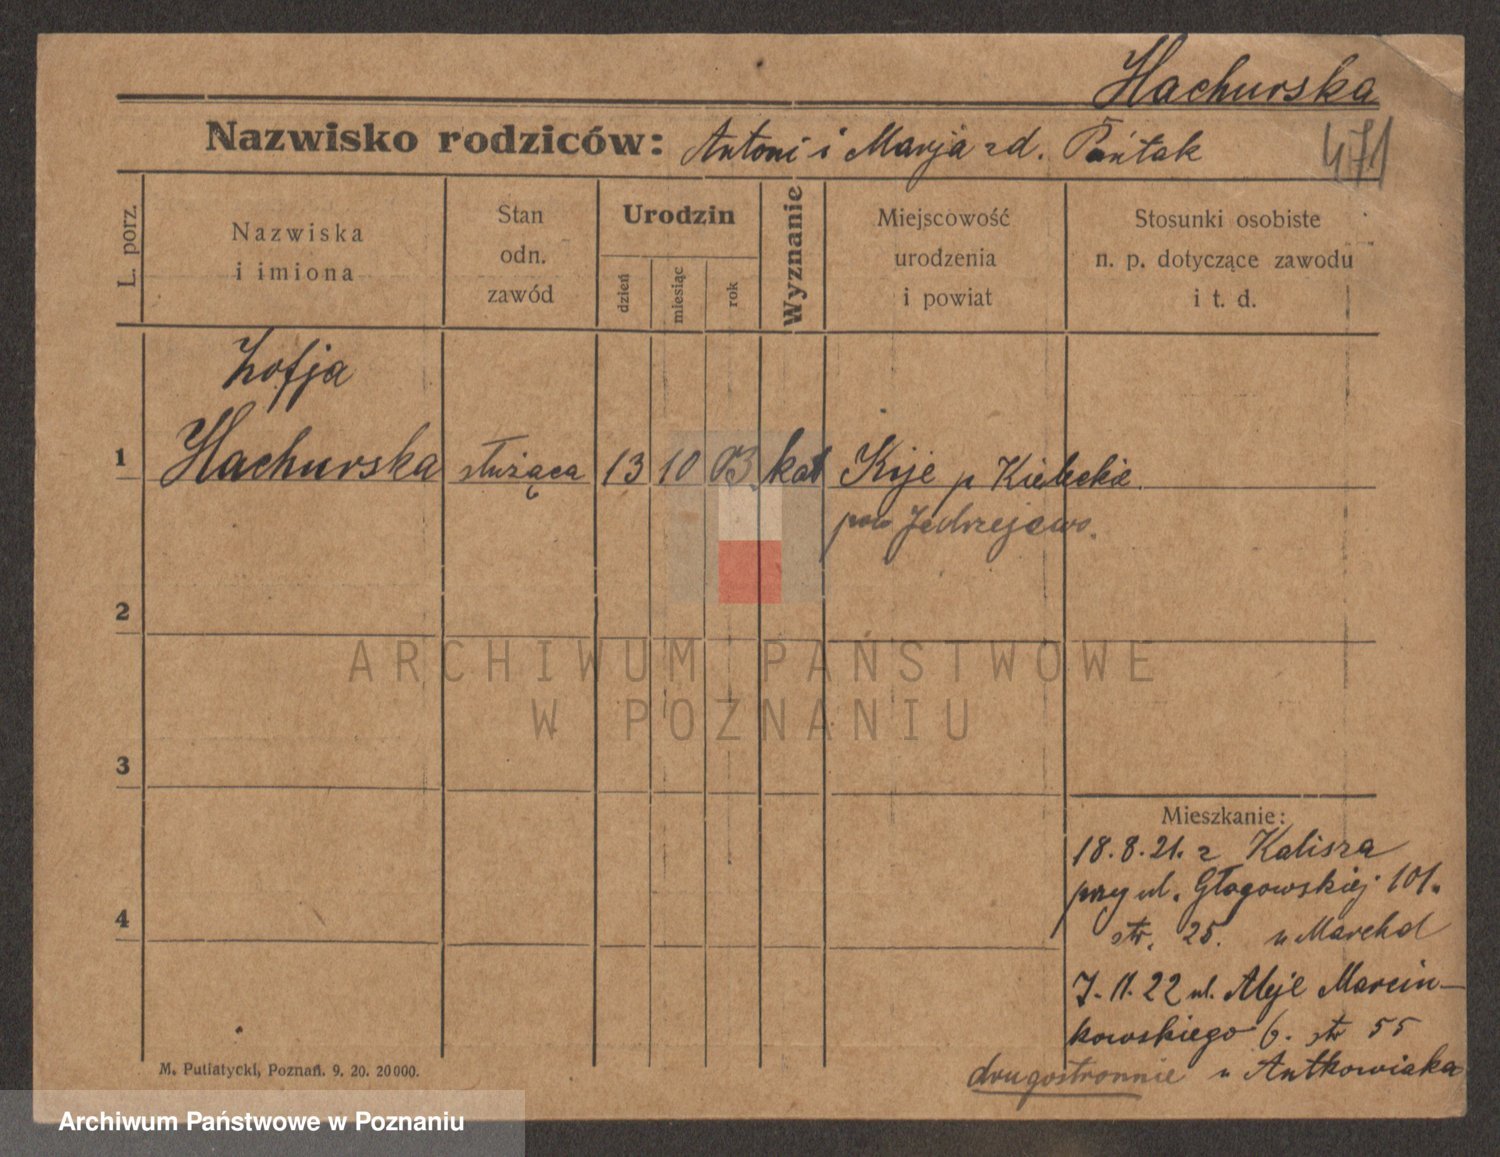 Hachurska
Nazwisko rodziców: Antoni i Marja zd. Pańtak
471
L. porz.
Nazwiska
i imiona
Stan
odn.
zawód
Urodzin
dzień
miesiąc
rok
Wyznanie
Miejscowość
urodzenia
i powiat
Stosunki osobiste
n. p. dotyczące zawodu
i t. d.
Zofja
1 Hachurska służąca 13 10 03. kat Kije p Kieleckie.
pow Jędrzejewo.
2
ARCHIWUM PAŃSTWOWE
W POZNANIU
3
Mieszkanie:
18.8.21. z Kalisza
przy ul. Głogowskiej 101.
str. 25. u Marchd
4
7.11.22 ul. Aleje Marcin-
kowskiego 6. str 55
drugostronnie u Antkowiaka
M. Putiatycki, Poznań. 9. 20. 20000.
Archiwum Państwowe w Poznaniu